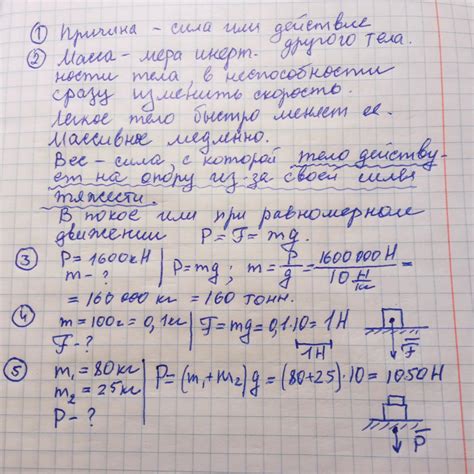 ① Причина - сила или действие
другого тела.
② Масса - мера инерт-
ности тела, в неспособности
сразу изменить скорость.
Легкое тело быстро меняет ее.
Массивное медленно.
Вес - сила, с которой тело действу-
ет на опору из-за своей силы
тяжести.
В покое или при равномерном
движении P = F = mg.
③ P = 1600кН | P = mg; m = P/g = 1600000Н / 10 Н/кг =
m - ?
= 160 000 кг = 160 тонн.
④ m = 100г = 0,1кг | F = mg = 0,1·10 = 1Н
F - ? 1Н F
⑤ m₁ = 80кг | P = (m₁ + m₂)g = (80+25)·10 = 1050Н
m₂ = 25кг
P - ? P